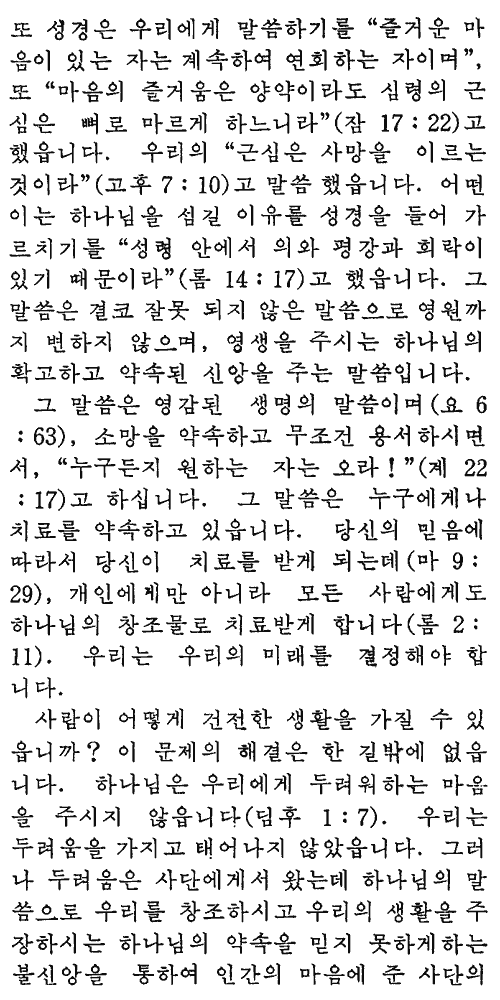 또 성경은 우리에게 말씀하기를 “즐거운 마
음이 있는 자는 계속하여 연회하는 자이며”,
또 “마음의 즐거움은 양약이라도 심령의 근
심은 뼈로 마르게 하느니라”(잠 17 : 22)고
했읍니다. 우리의 “근심은 사망을 이르는
것이라”(고후 7 : 10)고 말씀 했읍니다. 어떤
이는 하나님을 섬길 이유를 성경을 들어 가
르치기를 “성령 안에서 의와 평강과 희락이
있기 때문이라”(롬 14 : 17)고 했읍니다. 그
말씀은 결코 잘못 되지 않은 말씀으로 영원까
지 변하지 않으며, 영생을 주시는 하나님의
확고하고 약속된 신앙을 주는 말씀입니다.
그 말씀은 영감된 생명의 말씀이며(요 6
: 63), 소망을 약속하고 무조건 용서하시면
서, “누구든지 원하는 자는 오라！”(계 22
: 17)고 하십니다. 그 말씀은 누구에게나
치료를 약속하고 있읍니다. 당신의 믿음에
따라서 당신이 치료를 받게 되는데(마 9 :
29), 개인에게만 아니라 모든 사람에게도
하나님의 창조물로 치료받게 합니다(롬 2 :
11). 우리는 우리의 미래를 결정해야 합
니다.
사람이 어떻게 건전한 생활을 가질 수 있
읍니까? 이 문제의 해결은 한 길밖에 없읍
니다. 하나님은 우리에게 두려워하는 마음
을 주시지 않읍니다(딤후 1 : 7). 우리는
두려움을 가지고 태어나지 않았읍니다. 그러
나 두려움은 사단에게서 왔는데 하나님의 말
씀으로 우리를 창조하시고 우리의 생활을 주
장하시는 하나님의 약속을 믿지 못하게하는
불신앙을 통하여 인간의 마음에 준 사단의